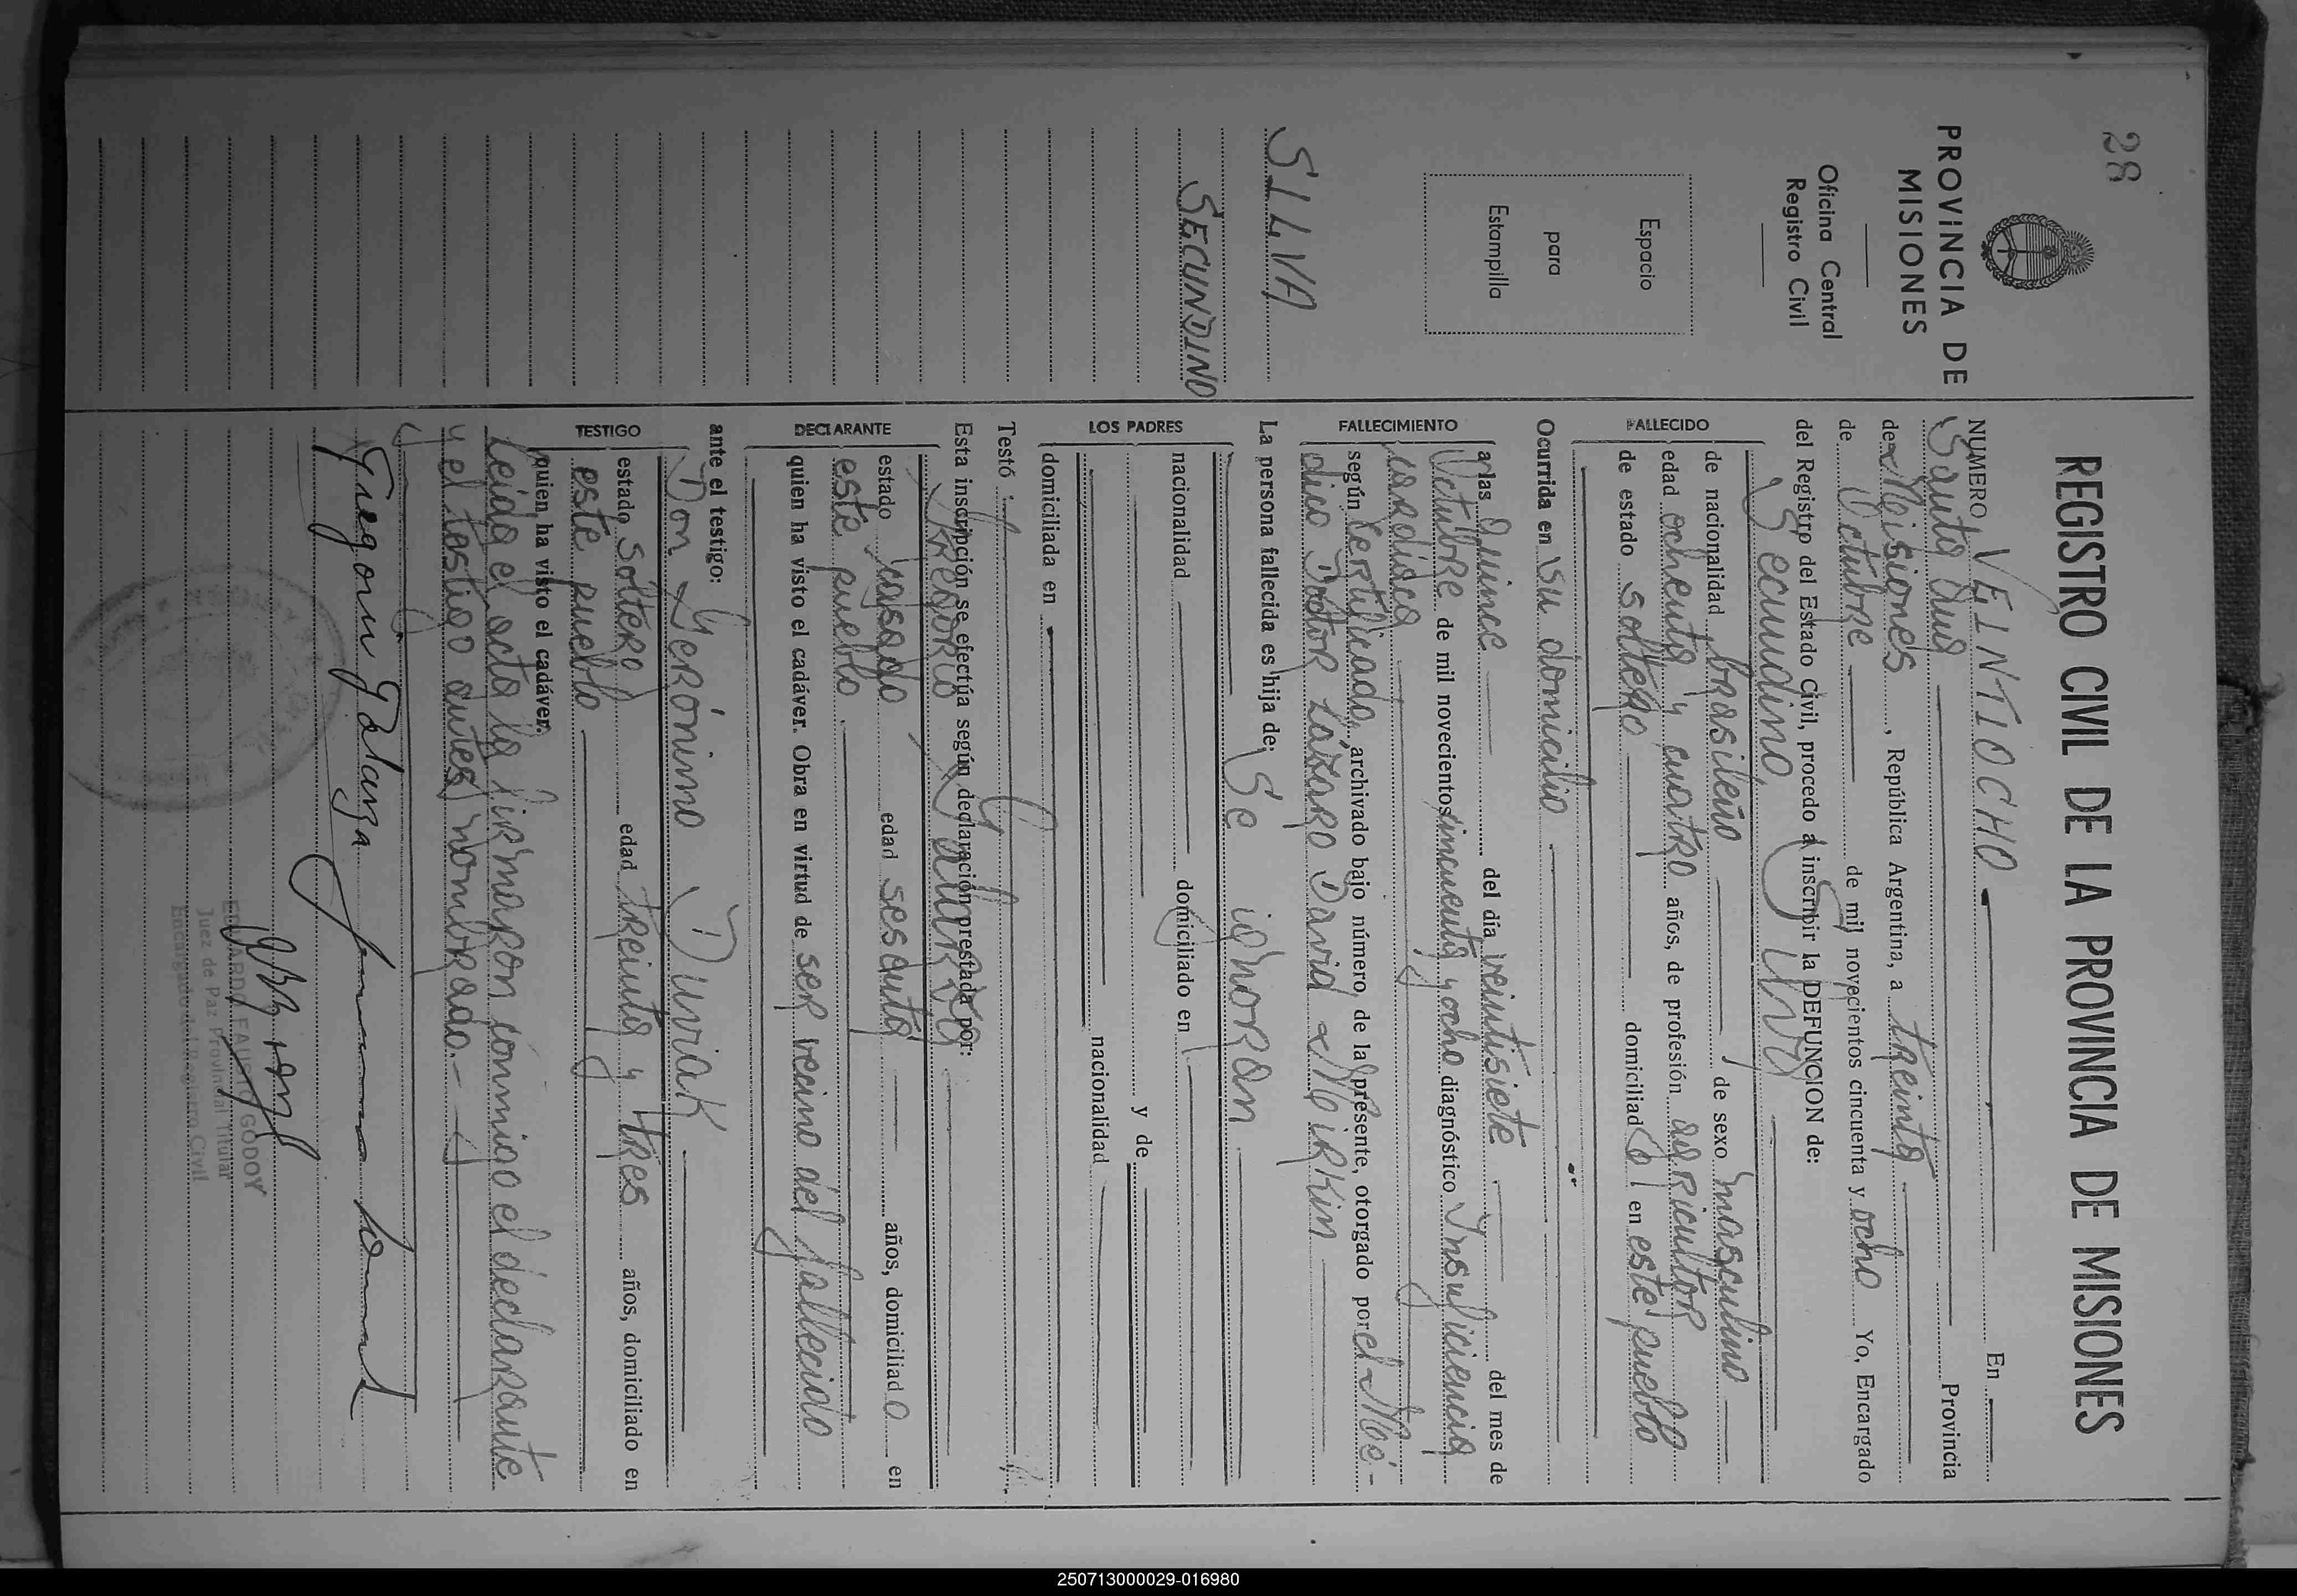 28
PROVINCIA DE
MISIONES
Oficina Central
Registro Civil
Espacio
para
Estampilla
SILVA
SECUNDINO
REGISTRO CIVIL DE LA PROVINCIA DE MISIONES
NUMERO VEINTIOCHO En
Santa Ana Provincia
de Misiones, República Argentina, a treinta
de Octubre de mil novecientos cincuenta y ocho Yo, Encargado
del Registro del Estado Civil, procedo a inscribir la DEFUNCION de:
Secundino Silva
FALLECIDO
de nacionalidad brasileño de sexo masculino
edad ochenta y cuatro años, de profesión agricultor
de estado soltero domiciliado en este pueblo
Ocurrida en su domicilio
FALLECIMIENTO
a las quince del día veintisiete del mes de
Octubre de mil novecientos cincuenta y ocho diagnóstico Insuficiencia
cardíaca
según certificado, archivado bajo número, de la presente, otorgado por el Mé-
dico Doctor Lázaro David Mirkin
La persona fallecida es hija de: Se ignoran
LOS PADRES
nacionalidad domiciliado en
y de
nacionalidad
domiciliada en
Testó
Esta inscripción se efectúa según declaración prestada por:
Gregorio Galarza
DECLARANTE
estado casado edad sesenta años, domiciliado en
este pueblo
quien ha visto el cadáver. Obra en virtud de ser vecino del fallecido
ante el testigo:
Don Gerónimo Duviak
TESTIGO
estado soltero edad treinta y tres años, domiciliado en
este pueblo
quien ha visto el cadáver.
Leída el acta la firmaron conmigo el declarante
y el testigo antes nombrado.-
Gregorio Galarza
EDUARDO FAUSTO GODOY
Juez de Paz Provincial Titular
Encargado del Registro Civil
250713000029-016980